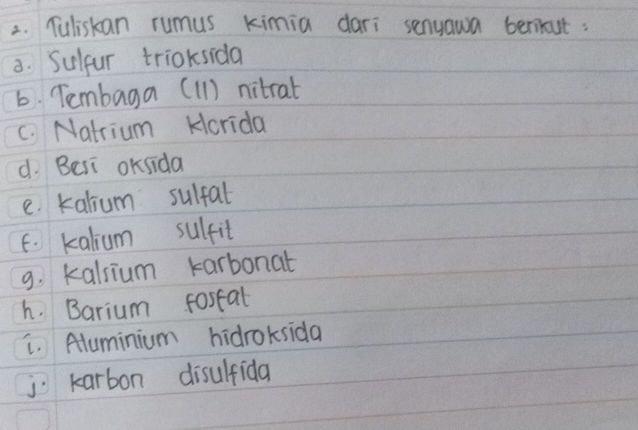 2. Tuliskan rumus kimia dari senyawa berikut :
a. Sulfur trioksida
b. Tembaga (II) nitrat
c. Natrium klorida
d. Besi oksida
e. kalium sulfat
f. kalium sulfit
g. kalsium karbonat
h. Barium fosfat
i. Aluminium hidroksida
j. karbon disulfida